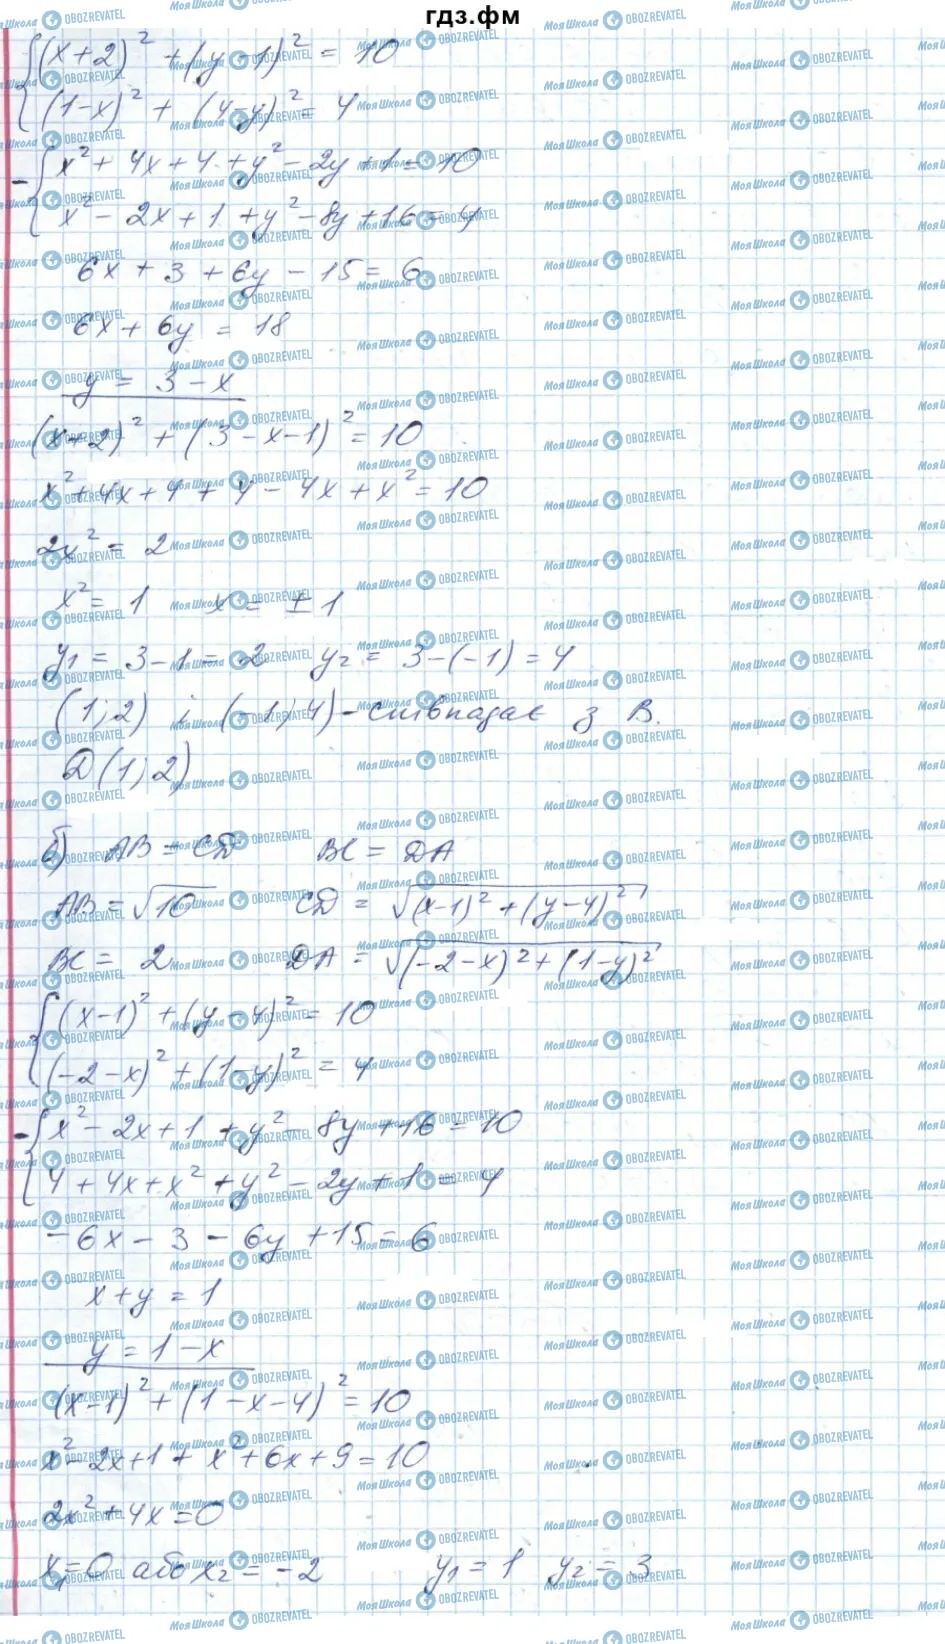 гдз.фм
(x+2)² + (y-1)² = 10
(1-x)² + (4-y)² = 4
x² + 4x + 4 + y² - 2y + 1 = 10
x² - 2x + 1 + y² - 8y + 16 = 4
6x + 3 + 6y - 15 = 6
6x + 6y = 18
y = 3 - x
(x+2)² + (3-x-1)² = 10
x² + 4x + 4 + 4 - 4x + x² = 10
2x² = 2
x² = 1   x = ±1
y₁ = 3-1 = 2   y₂ = 3-(-1) = 4
(1; 2) і (-1; 4) - співпадає з B.
D(1; 2)
б) AB = CD   BC = DA
AB = √10   CD = √(x-1)² + (y-4)²
BC = 2   DA = √(-2-x)² + (1-y)²
(x-1)² + (y-4)² = 10
(-2-x)² + (1-y)² = 4
x² - 2x + 1 + y² - 8y + 16 = 10
4 + 4x + x² + y² - 2y + 1 = 4
-6x - 3 - 6y + 15 = 6
x + y = 1
y = 1 - x
(x-1)² + (1-x-4)² = 10
x² - 2x + 1 + x² + 6x + 9 = 10
2x² + 4x = 0
x₁ = 0 або x₂ = -2   y₁ = 1   y₂ = 3
МояШкола OBOZREVATEL